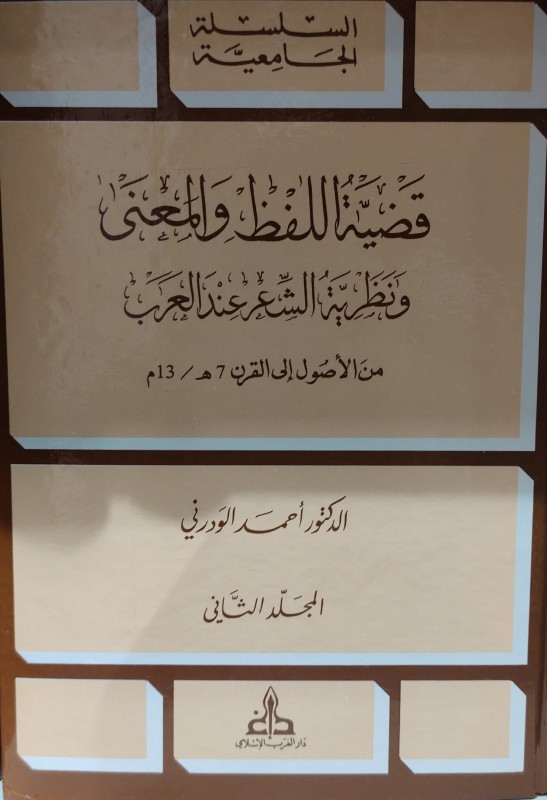 السلسلة
الجامعيّة
قضيّة اللفظ والمعنى
ونظريّة الشعر عند العرب
من الأصول إلى القرن 7 هـ / 13 م
الدكتور أحمد الودرني
المجلّد الثّاني
دار الغرب الإسلامي